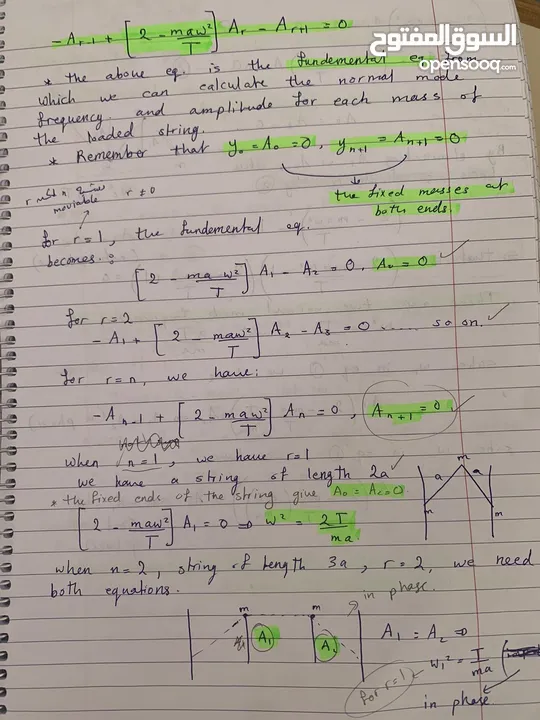 السوق المفتوح
opensooq.com
-A_{r-1} + [2 - maω²/T] A_r - A_{r+1} = 0
* the above eq. is the fundemental eq. from
which we can calculate the normal mode
frequency and amplitude for each mass of
the loaded string.
* Remember that y₀ = A₀ = 0, y_{n+1} = A_{n+1} = 0
r ≠ 0
moviable
the fixed masses at
both ends.
for r = 1, the fundemental eq.
becomes:
[2 - maω²/T] A₁ - A₂ = 0, A₀ = 0 ✓
for r = 2
-A₁ + [2 - maω²/T] A₂ - A₃ = 0 ..... so on. ✓
for r = n, we have:
-A_{n-1} + [2 - maω²/T] A_n = 0, A_{n+1} = 0 ✓
when n = 1, we have r = 1
we have a string of length 2a ✓
* the fixed ends of the string give A₀ = A₂ = 0
m
a
a
m
m
[2 - maω²/T] A₁ = 0 ⇒ ω² = 2T/ma
when n = 2, string of length 3a, r = 2, we need
both equations.
in phase.
m
m
A₁
A₁ = A₂ ⇒
for r = 1
ω₁² = T/ma
in phase